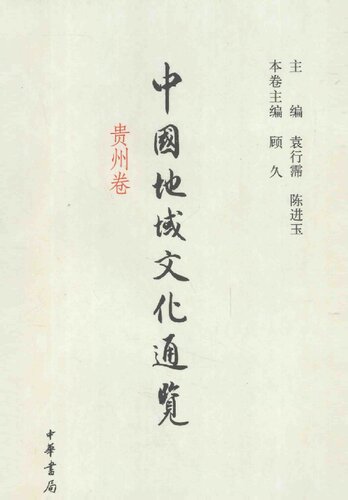 主 编 袁行霈 陈进玉
本卷主编 顾 久
中國地域文化通覽
贵州卷
中華書局